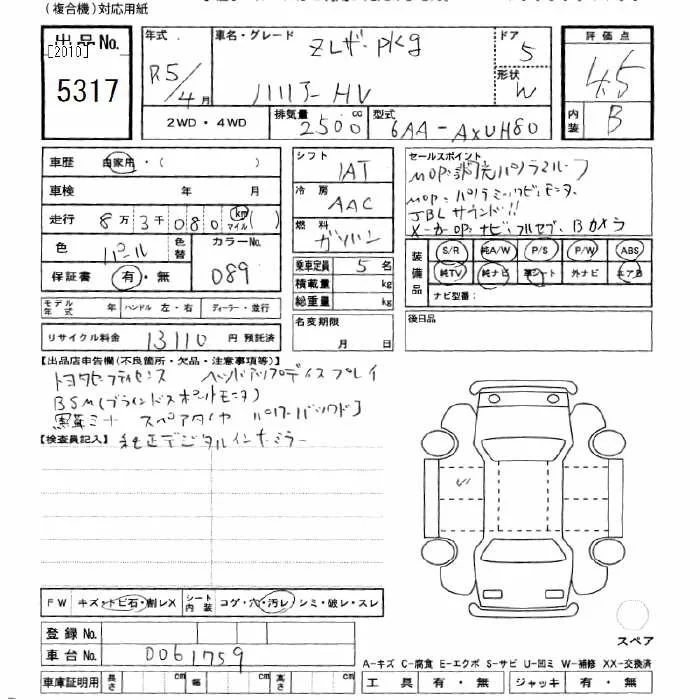 (複合機)対応用紙
出品No.
[2010]
5317
年式 R5/4月
車名・グレード ZLレザーPkg
ハリアーHV
ドア 5
形状 W
評価点 4.5
内装 B
2WD・4WD
排気量 2500 cc
型式 6AA-AXUH80
車歴 自家用・( )
車検 年 月
走行 8万3千080 km マイル ( )
色 パール
色替
カラーNo. 089
保証書 有・無
シフト IAT
冷房 AAC
燃料 ガソリン
乗車定員 5名
積載量 kg
総重量 kg
セールスポイント
MOP:調光パノラマルーフ
MOP:パノラミックビューモニタ、
JBLサウンド!!
メーカーOP:ナビ、フルセグ、Bカメラ
装備品 S/R 純A/W P/S P/W ABS
純TV 純ナビ 革シート 外ナビ エアB
ナビ型番:
モデル年式 年 ハンドル 左・右 ディーラー・並行
名変期限 月 日
後日品
リサイクル料金 13110 円 預託済
【出品店申告欄(不良箇所・欠品・注意事項等)】
トヨタセーフティセンス ヘッドアップディスプレイ
BSM(ブラインドスポットモニタ)
スペアタイヤ パワーバックドア
【検査員記入】 純正デジタルインナーミラー
FW キズ・トビ石・割レX シート内装 コゲ・穴・汚レ・シミ・破レ・スレ
登録No.
車台No. 0061759
スペア
A-キズ C-腐食 E-エクボ S-サビ U-凹ミ W-補修 XX-交換済
車庫証明用 長さ cm 幅 cm 高さ cm
工具 有・無 ジャッキ 有・無